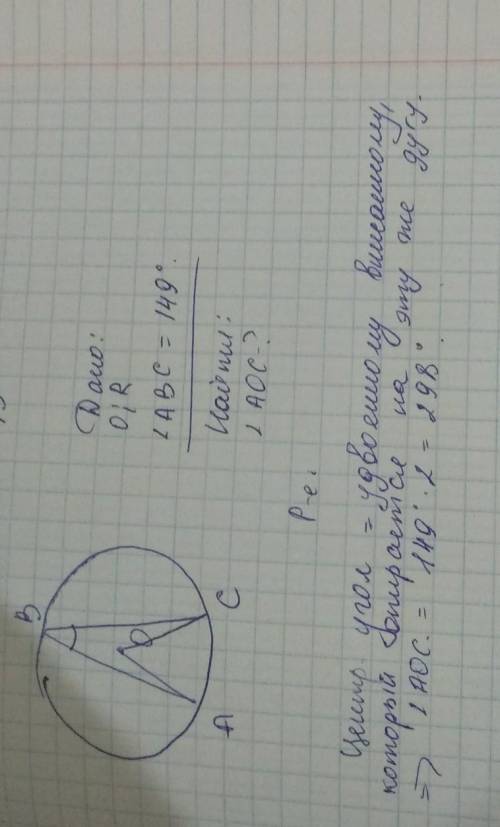 B
O
A
C
Дано:
O; R
∠ABC = 149°.
Найти:
∠AOC-?
Р-е:
Центр. угол = удвоенному вписанному,
который опирается на эту же дугу.
=> ∠AOC = 149° · 2 = 298°.